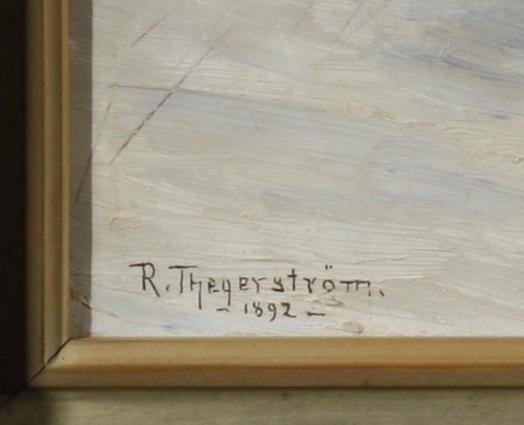 R. Thegerström.
- 1892 -